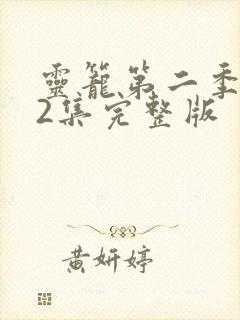 靈籠第二季
2集完整版
黄妍婷